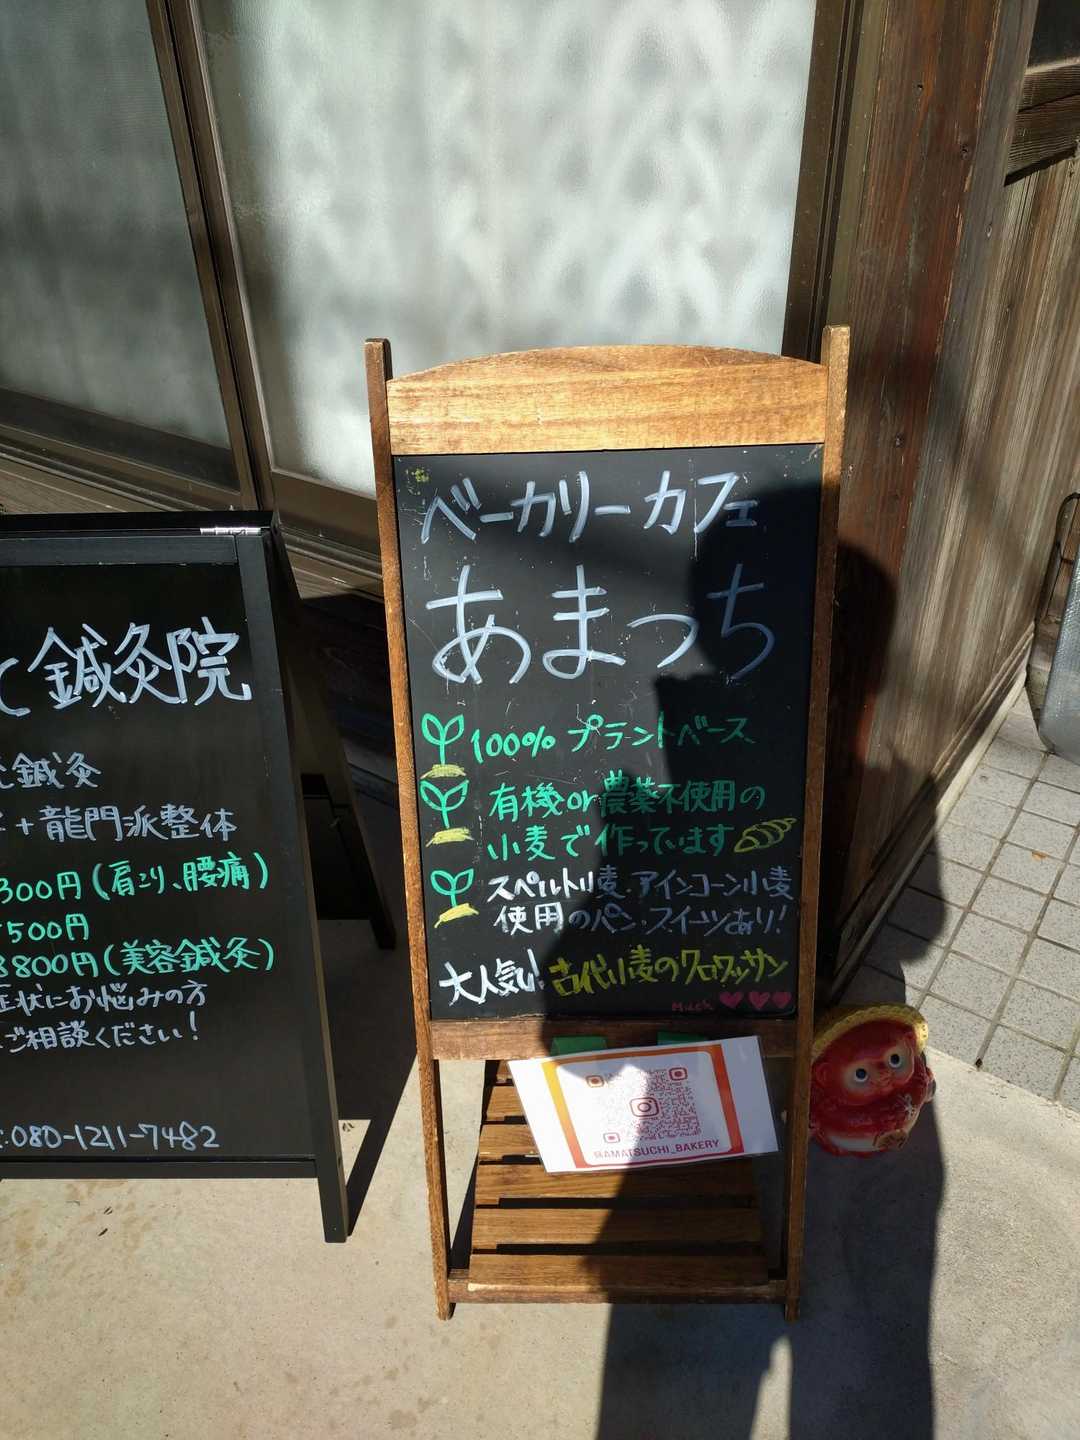 ベーカリーカフェ
あまつち
100% プラントベース
有機or農薬不使用の
小麦で作っています
スペルト小麦・アインコーン小麦
使用のパン・スイーツあり!
大人気! 古代小麦のクロワッサン
@AMATSUCHI_BAKERY
鍼灸院
鍼灸
+龍門派整体
300円(肩こり、腰痛)
500円
8800円(美容鍼灸)
症状にお悩みの方
ご相談ください!
080-1211-7482